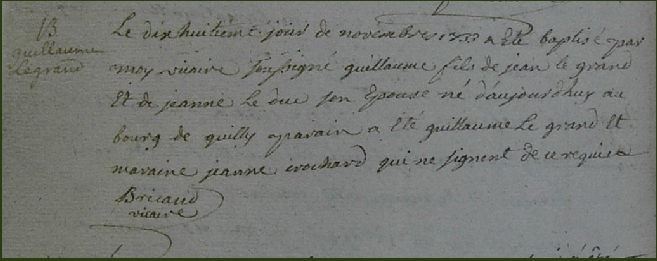 13
guillaume
Legrand
Le dix huitieme jour de novembre a Eté baptisé par
moy vicaire soussigné guillaume fils de jean le grand
Et de jeanne Le duc son Epouse né d'aujourdhuy au
bourg de quilly parain a Eté guillaume Le grand Et
maraine jeanne crochard qui ne signent de ce requis
Bricaud
vicaire